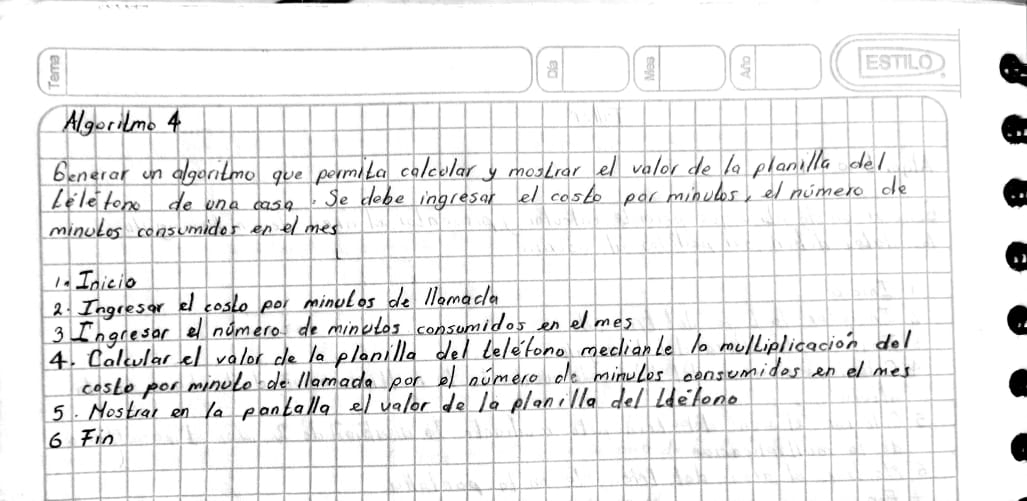 Tema
Día
Mes
Año
ESTILO
Algoritmo 4
Generar un algoritmo que permita calcular y mostrar el valor de la planilla del
teléfono de una casa. Se debe ingresar el costo por minutos, el número de
minutos consumidos en el mes
1. Inicio
2. Ingresar el costo por minutos de llamada
3 Ingresar el número de minutos consumidos en el mes
4. Calcular el valor de la planilla del teléfono mediante la multiplicación del
costo por minuto de llamada por el número de minutos consumidos en el mes
5. Mostrar en la pantalla el valor de la planilla del teléfono
6 Fin